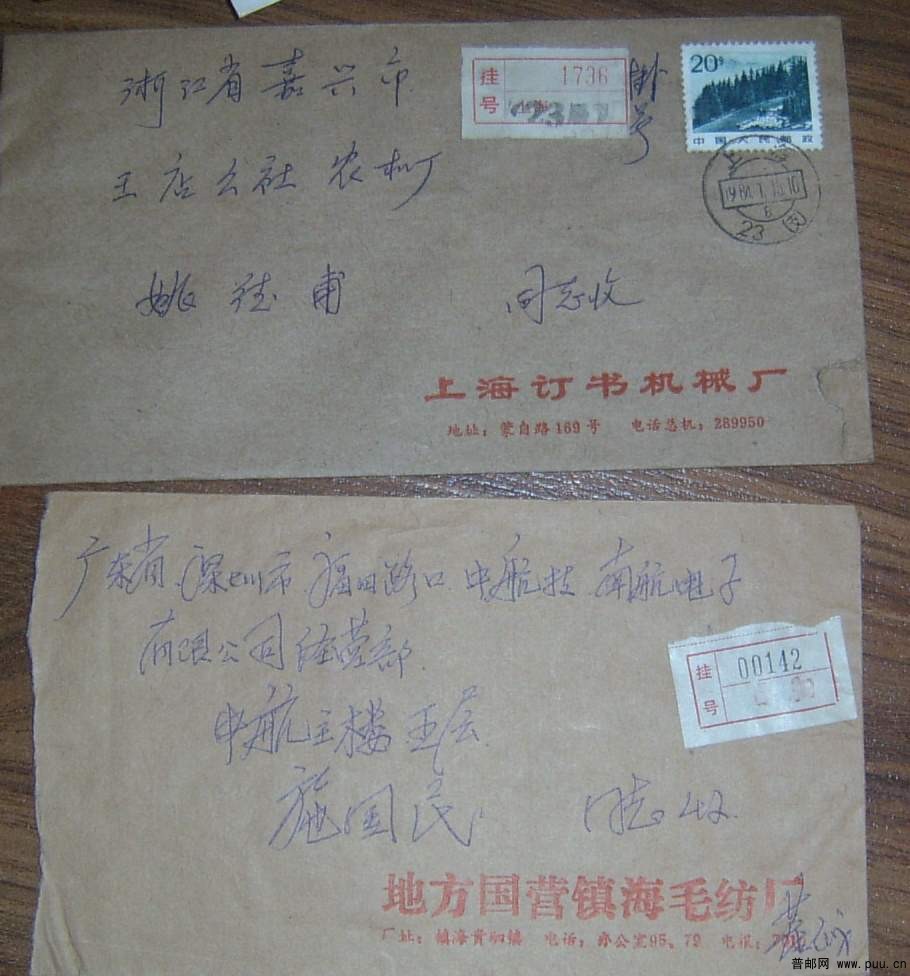 浙江省嘉兴市
挂号
1736
挂号
20分
中国人民邮政
王店公社 农机厂
上海
23
姚德甫 同志收
上海订书机械厂
地址：蒙自路169号 电话总机：289950
广东省深圳市福田路口中航技南航电子
有限公司经营部
挂号
00142
中航主楼五层
施国民 同志收
地方国营镇海毛纺厂
厂址：镇海贵驷镇 电话：办公室95、79 电报：
普邮网 www.puu.cn